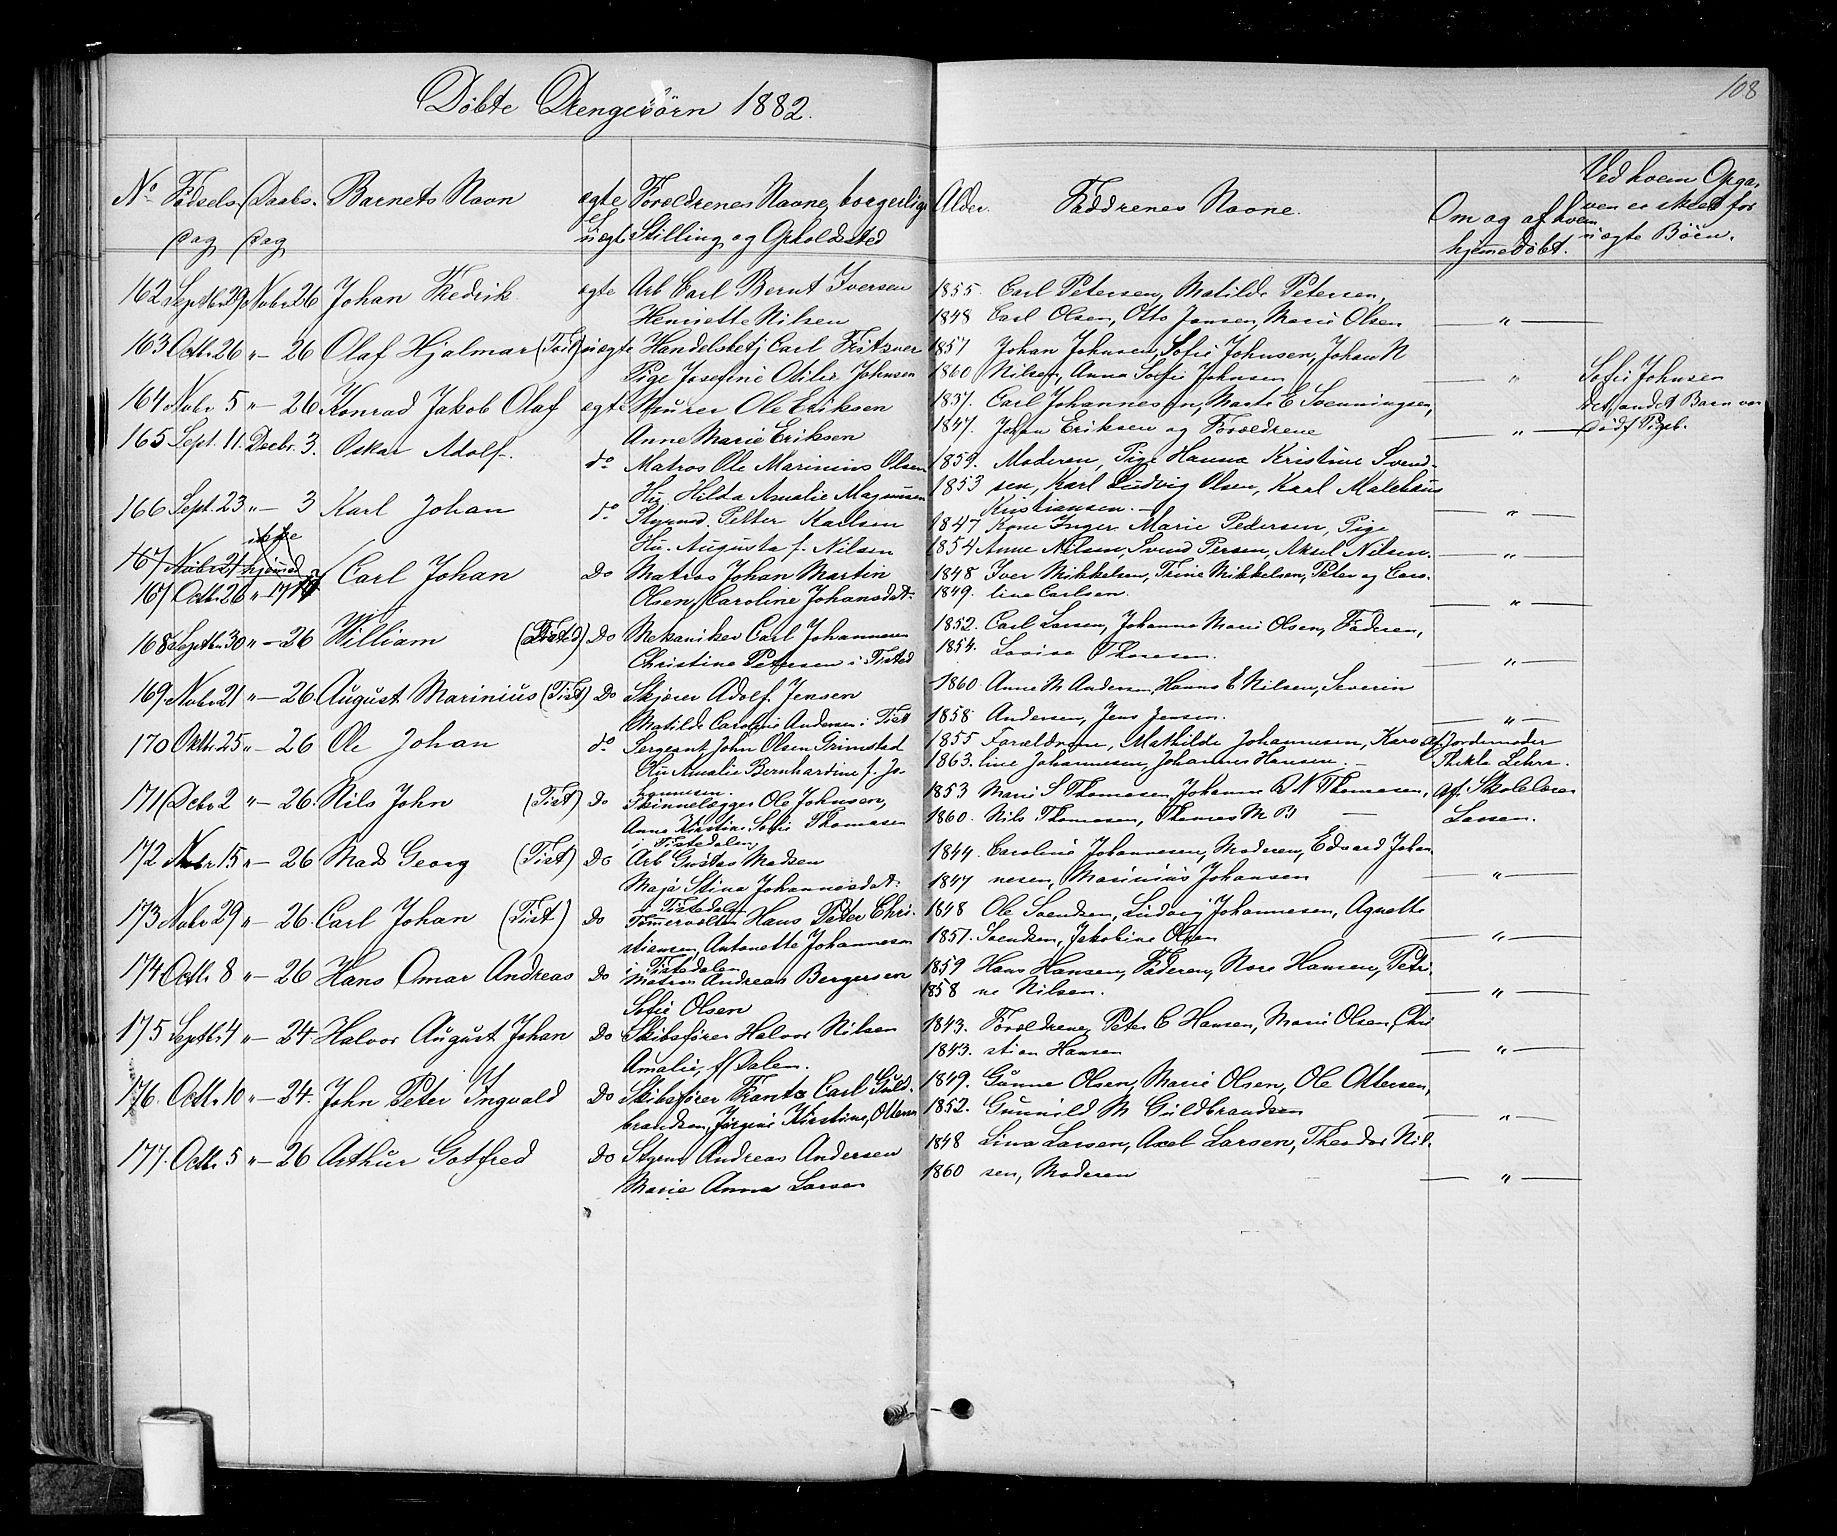 Døbte Drengebørn 1882.
108
No Fødsels Daabs. Barnets Navn ægte Forældrenes Navne, borgerlige Alder. Faddrenes Navne. Om og af hvem Ved hvem Opga-
dag dag el uægte Stilling og Opholdssted hjemmedøbt. ven er skeet for
uægte Børn.
162 Septbr 29 Novbr 26 Johan Fredrik ægte Arb Carl Bernt Iversen 1855. Carl Petersen, Matilde Petersen,
Henriette Nilsen 1848 Carl Olsen, Otto Jansen, Marie Olsen — " —
163 Octbr 26 " — 26 Olaf Hjalmar (Tist) uægte Handelsbetj Carl Fritzner 1857 Johan Johnsen, Sofie Johnsen, Johan N
Pige Josefine Otilie Johnsen 1860 Nilsen, Anna Sofie Johnsen — " — Sofie Johnsen
164 Novbr 5 " — 26 Konrad Jakob Olaf ægte Murer Ole Eriksen 1837. Carl Johannesen, Marte E Svenningsen, det andet Barn var
Anne Marie Eriksen 1847. Johan Eriksen og Forældrene — " —
165 Sept. 11. Decbr. 3. Oskar Adolf. do Matros Ole Marinius Olsen 1859. Moderen, Pige Hanna Kristine Svend-
Hu. Hilda Amalie Magnusen 1853 sen, Karl Ludvig Olsen, Karl Mathæus
Kristiansen. — " —
166 Sept. 23 " — 3 Karl Johan do Styrmd. Petter Karlsen 1847 Kone Inger Marie Pedersen, Pige
Hu. Augusta f. Nilsen 1854 Anne Nilsen, Svend Persen, Aksel Nilsen. — " —
167 Novbr 21 ikke hjemmed
167 Octbr 26 " — 17 Carl Johan Do Matros Johan Martin 1848 Iver Mikkelsen, Trine Mikkelsen, Peter og Caro-
Olsen, Caroline Johansdat. 1849. line Carlsen. — " —
168 Septbr 30 " — 26 William (Tisted) Do Mekaniker Carl Johannesen 1852. Carl Larsen, Johanne Marie Olsen, Faderen,
Christine Petersen i Tisted 1854. Lovise Thoresen. — " —
169 Novbr 21 " — 26 August Marinius (Tist) Do Skjører Adolf Jensen 1860 Anne M Andersen, Hanna E Nilsen, Severin
Matilde Caroline Andersen i Tist 1858 Andersen, Jens Jensen. — " —
170 Oktbr 25 " — 26 Ole Johan do Sergeant John Olsen Grimstad 1855 Forældrene, Mathilde Johannesen, Karo- Af Jordemoder
Hu Amalie Bernhardine f. Jo- 1863. line Johannesen, Johannes Hansen. — Thekla Lehre.
hannesen.
171 Decbr 2 " — 26. Nils John (Tist) Do Skinnelægger Ole Johnsen, 1853 Marie S Thomasen, Johanne D N Thomasen, af Skolelærer
Anne Kirstine Sofie Thomasen 1860. Nils Thomasen, Thomas M B — Larsen.
i Tistedalen
172 Novbr 15 " — 26 Mads Georg (Tist) Do Arb Gustav Madsen 1844 Caroline Johannesen, Moderen, Edvard Johan-
Maja Stina Johannesdat. 1847 nesen, Marinius Johansen — " —
i Tistedalen
173 Novbr 29 " — 26. Carl Johan (Tist) Do Tømmervelter Hans Peter Chri- 1848 Ole Svendsen, Ludvig Johannesen, Agnette
stiansen, Antonette Johannesen 1851. Svendsen, Jakobine Olsen — " —
i Tistedalen
174 Octbr 8 " — 26 Hans Omar Andreas Do Matros Andreas Bergersen 1859 Hans Hansen, Faderen, Nora Hansen, Petri-
Sofie Olsen 1858 ne Nilsen. — " —
175 Septbr 4 " — 24. Halvor August Johan Do Skibsfører Halvor Nilsen 1843. Forældrene, Peter C Hansen, Marie Olsen, Chri-
Amalie, f/ Dalen. 1843. stian Hansen — " —
176. Octbr 10 " — 24. John Peter Ingvald Do Skibsfører Frants Carl Guld- 1849. Gunne Olsen, Marie Olsen, Ole Ottersen,
brandsen, Jørgine Kirstine, Ottersen 1852. Gunnild M Guldbrandsen — " —
177. Octbr 5 " — 26 Arthur Gotfred Do Styrm Andreas Andersen 1848 Lina Larsen, Axel Larsen, Theodor Nil-
Marie Anna Larsen 1860 sen, Moderen — " —